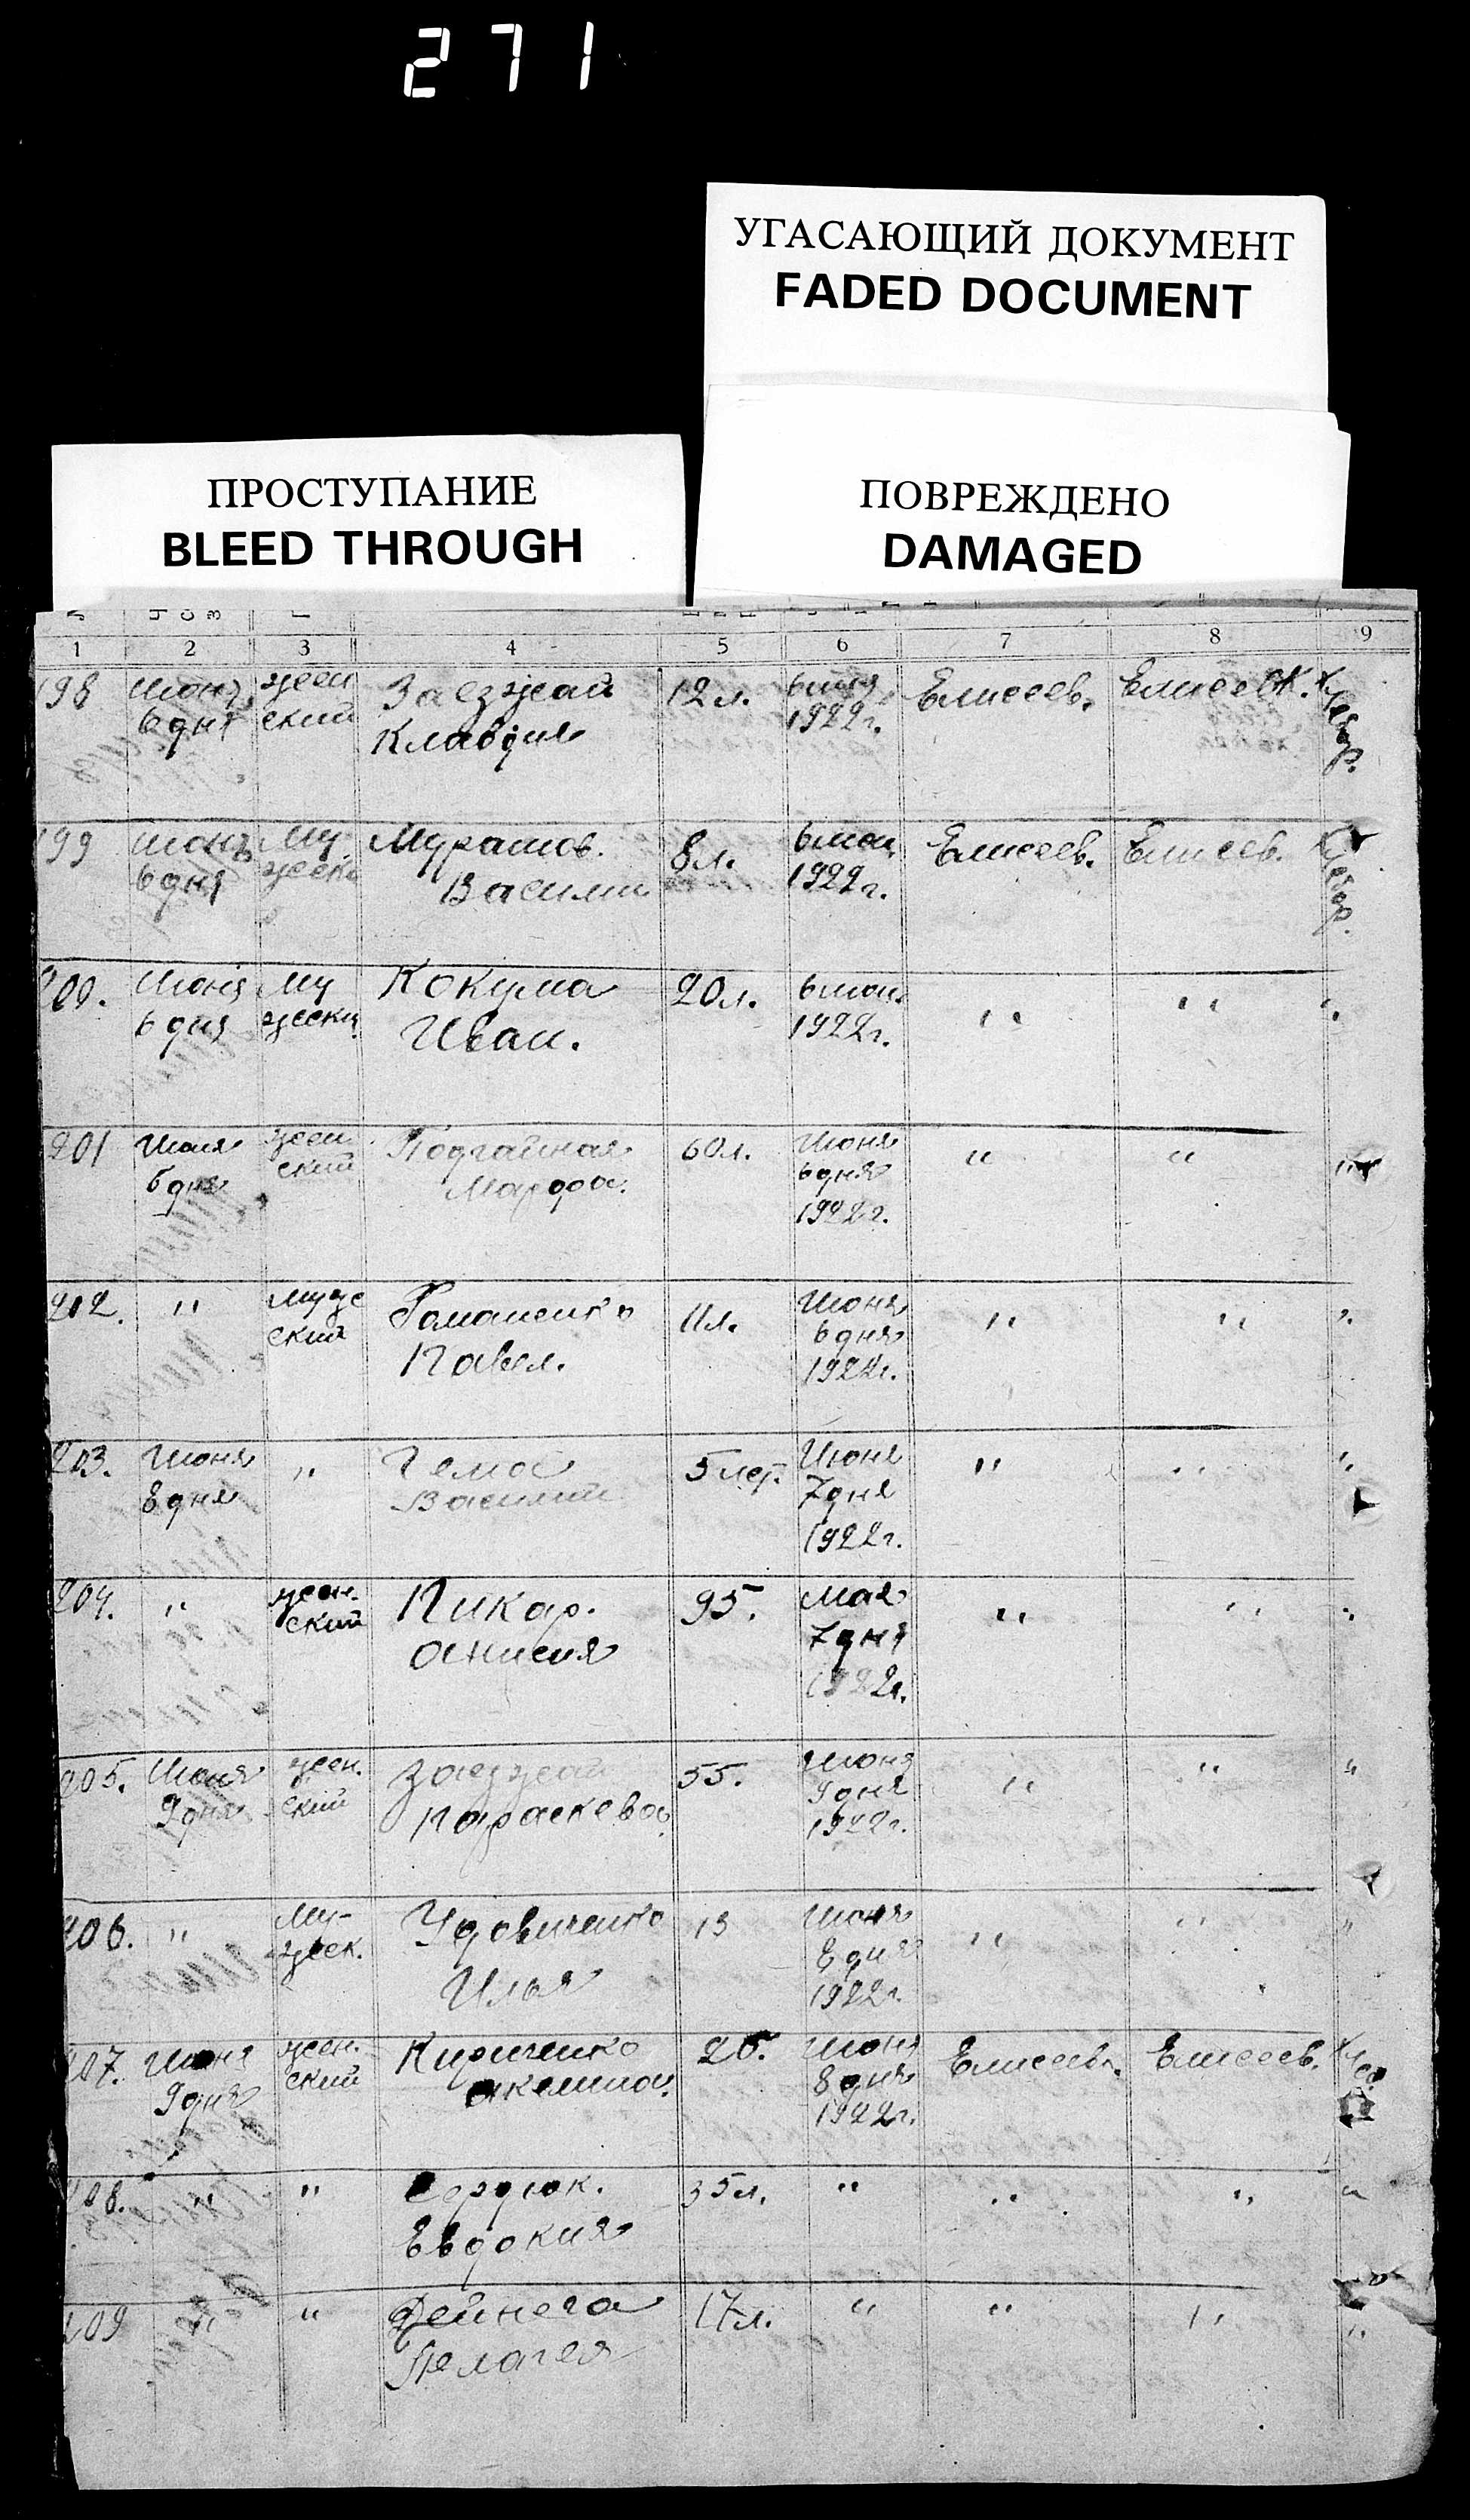 271
УГАСАЮЩИЙ ДОКУМЕНТ
FADED DOCUMENT
ПРОСТУПАНИЕ
BLEED THROUGH
ПОВРЕЖДЕНО
DAMAGED
1 2 3 4 5 6 7 8 9
198 Июня жен Заезжай 12 л. 6 июня Елисеев. Елисеев
6 дня ский Клавдия 1922 г.
199 Июня Му Мурашов. 8 л. 6 июн. Елисеев. Елисеев.
6 дня жески Василий 1922 г.
200. Июня Му Кокума 20 л. 6 июн. " " "
6 дня жески Иван. 1922 г.
201 Июня жен Подгайная 60 л. Июня " " "
6 дня ский Марфа. 6 дня
1922 г.
202. " муже Романенко 11 л. Июня " " "
ский Павел. 6 дня
1922 г.
203. Июня " Гема 5 лет. Июня " " "
8 дня Василий 7 дня
1922 г.
204. " жен. Пикар. 95. мая " " "
ский Анисия 7 дня
1922 г.
205. Июня жен. Заезжай 55. Июня " " "
9 дня ский Параскева 9 дня
1922 г.
206. " Му- Удовиченко 13 Июня " " "
жеск. Илья 8 дня
1922 г.
207. Июня жен. Кириченко 26. Июня Елисеев. Елисеев.
9 дня ский Акелина. 8 дня
1922 г.
208. " " Сердюк. 35 л. " " " "
Евдокия
209 " " Дейнега 17 л. " " " "
Пелагея